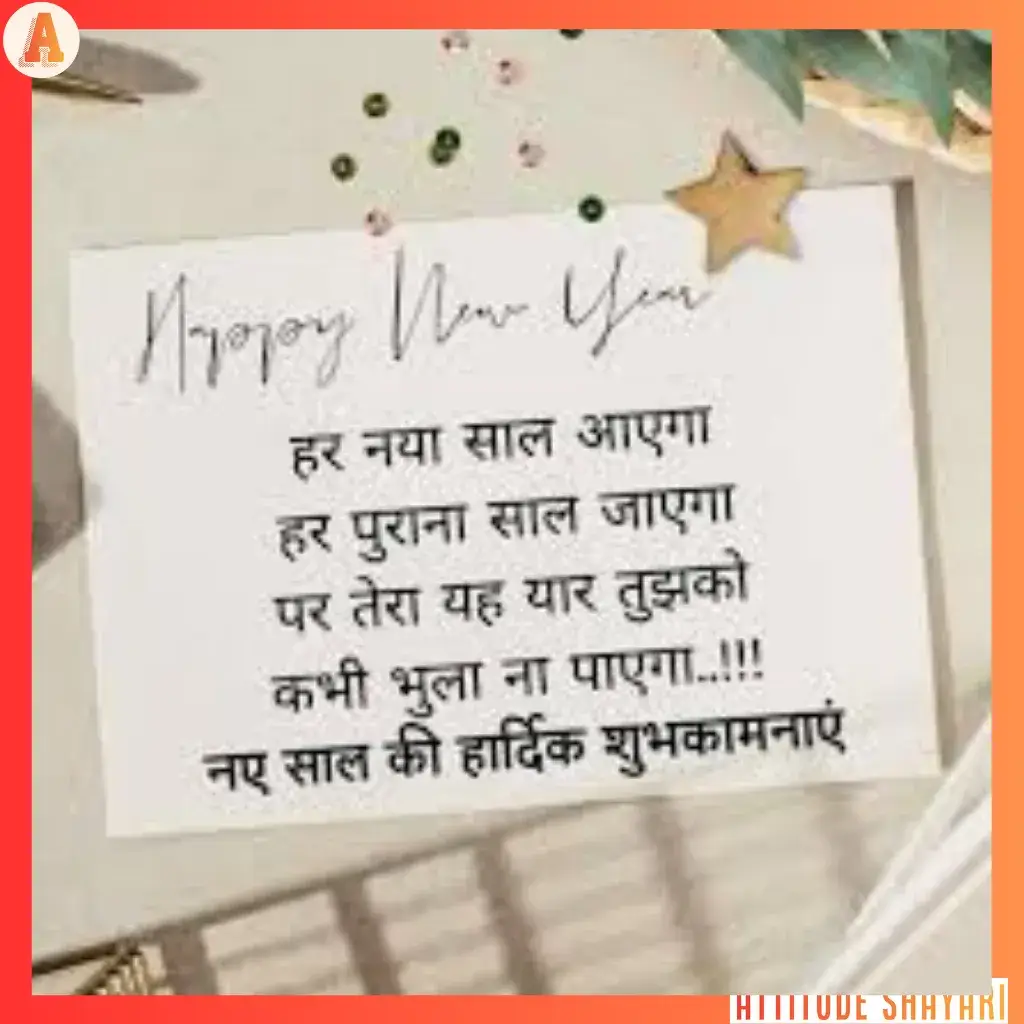 A
Happy New Year
हर नया साल आएगा
हर पुराना साल जाएगा
पर तेरा यह यार तुझको
कभी भुला ना पाएगा..!!!
नए साल की हार्दिक शुभकामनाएं
ATTITUDE SHAYARI